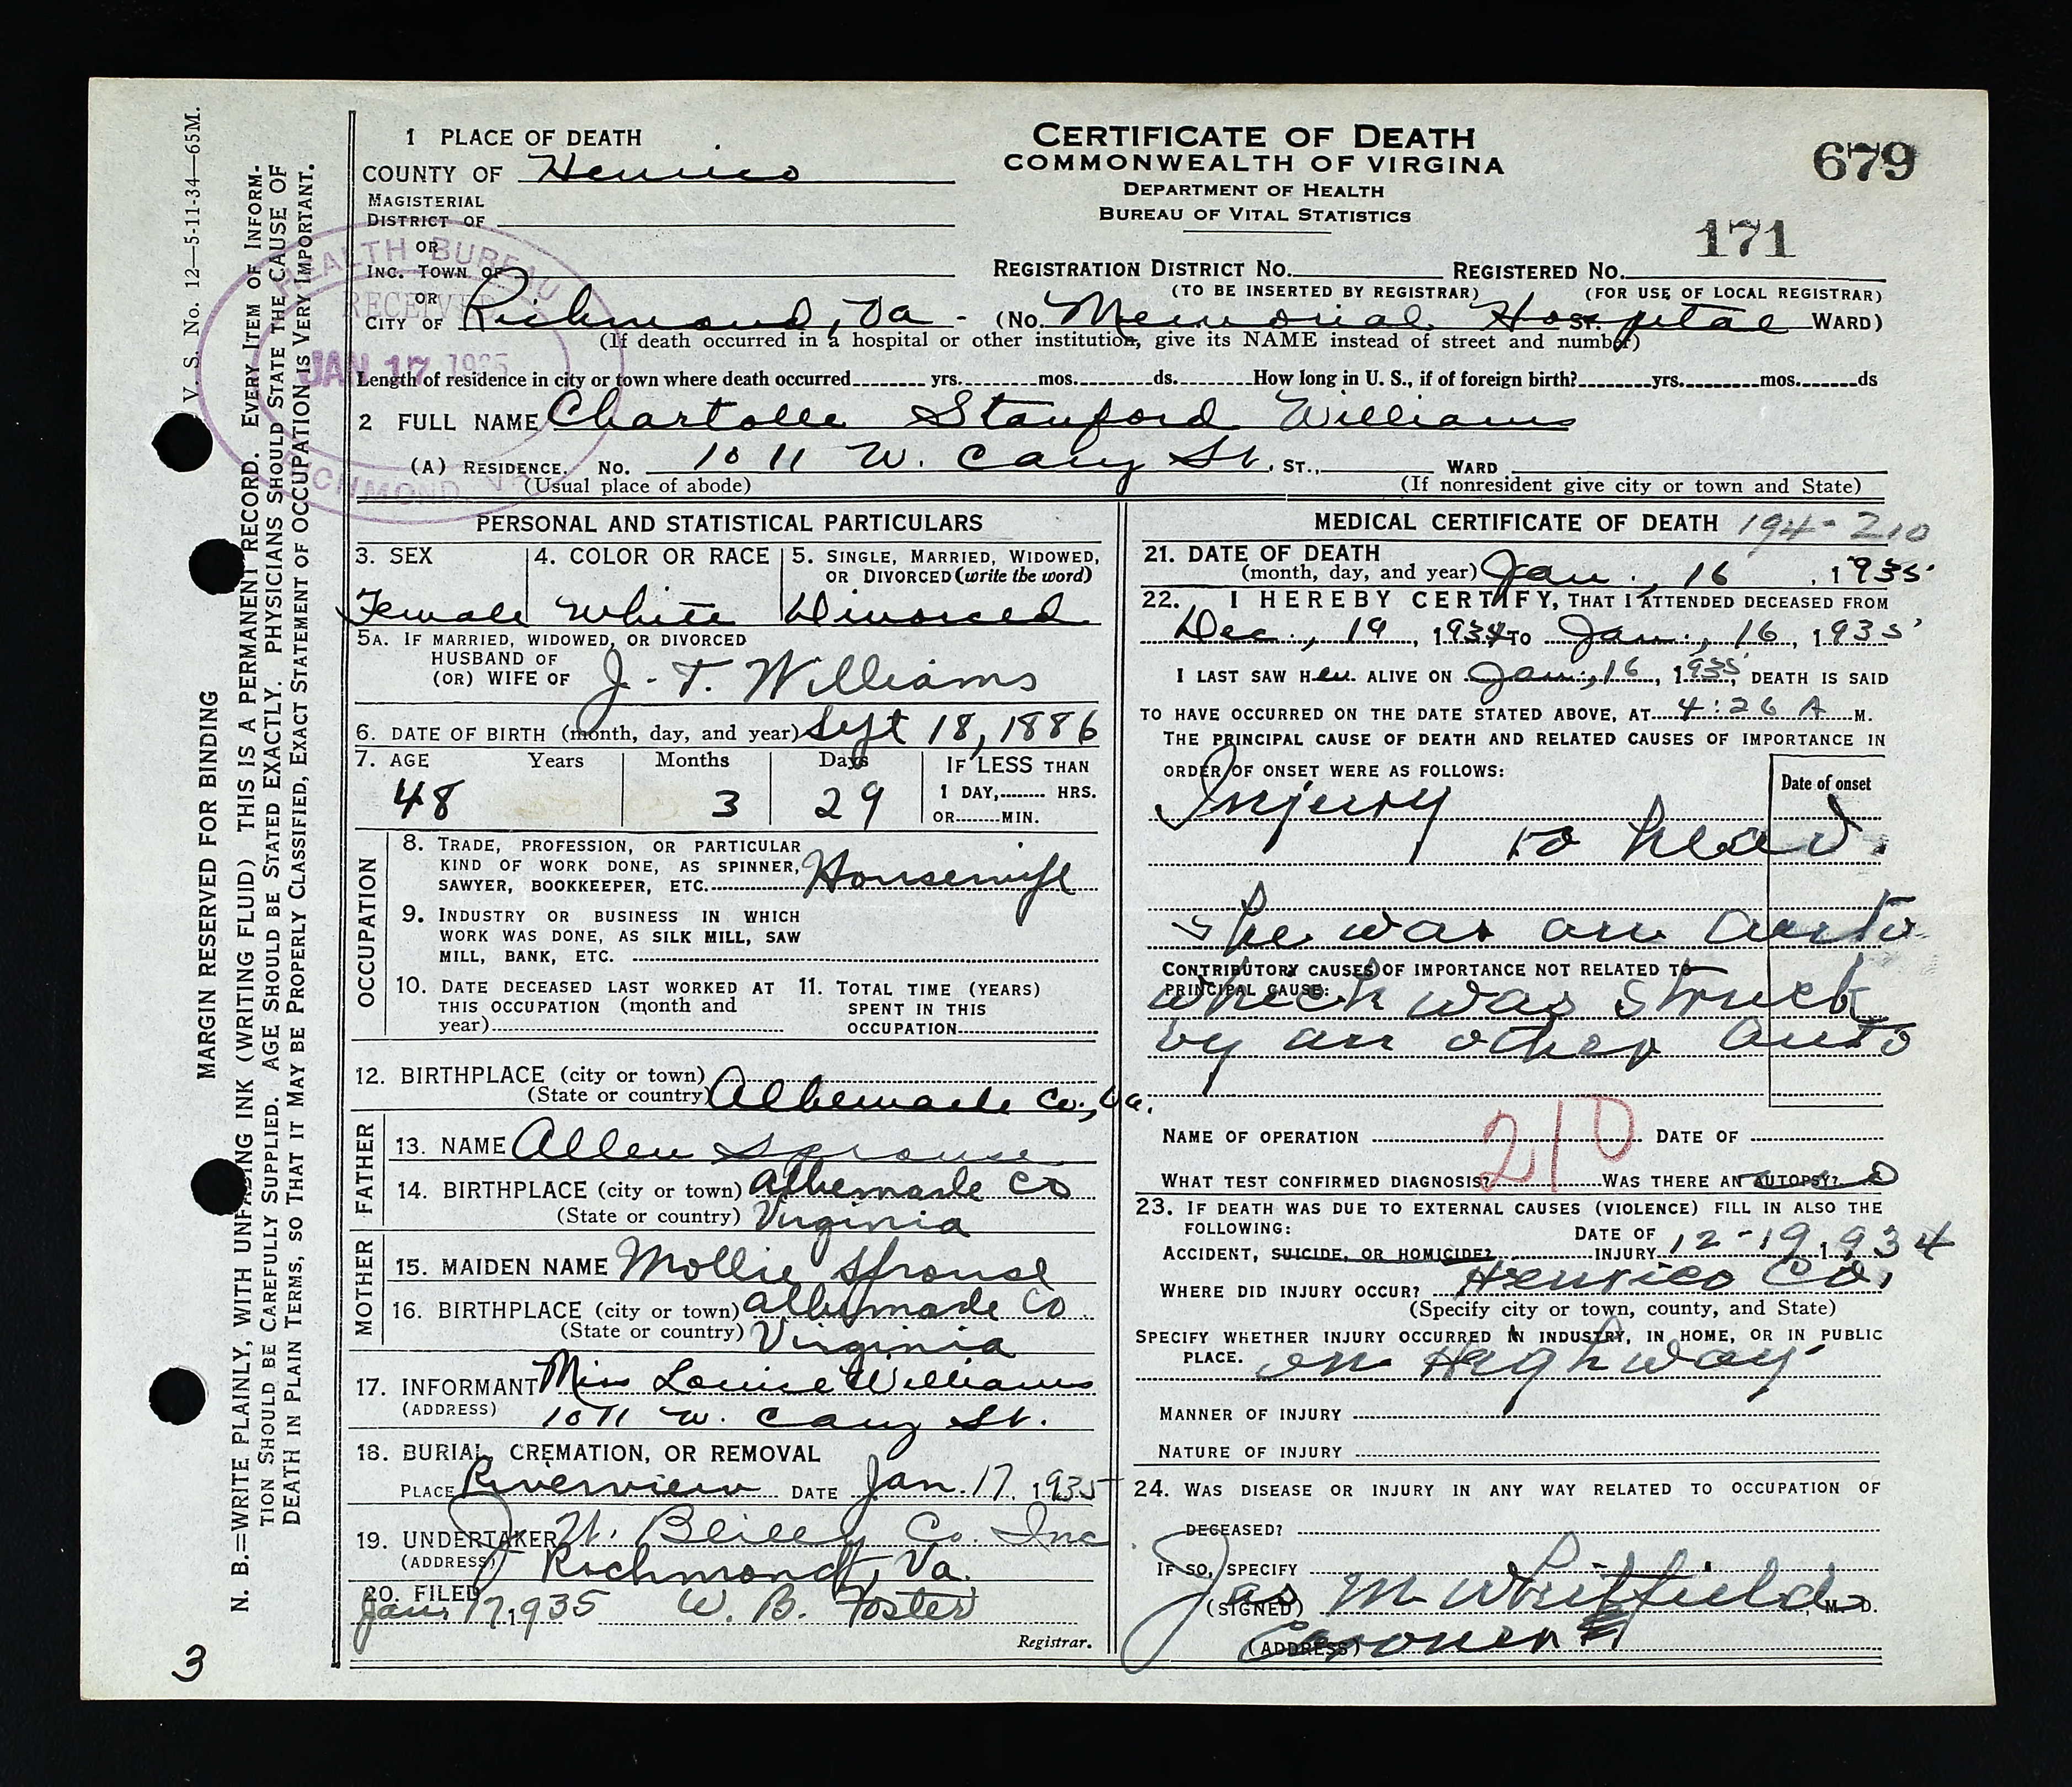 V. S. No. 12—5-11-34—65M.
MARGIN RESERVED FOR BINDING
N. B.=WRITE PLAINLY, WITH UNFADING INK (WRITING FLUID) THIS IS A PERMANENT RECORD. EVERY ITEM OF INFORM-
TION SHOULD BE CAREFULLY SUPPLIED. AGE SHOULD BE STATED EXACTLY. PHYSICIANS SHOULD STATE THE CAUSE OF
DEATH IN PLAIN TERMS, SO THAT IT MAY BE PROPERLY CLASSIFIED, EXACT STATEMENT OF OCCUPATION IS VERY IMPORTANT.
3
HEALTH BUREAU
RECEIVED
JAN 17 1935
RICHMOND, VA
CERTIFICATE OF DEATH
COMMONWEALTH OF VIRGINA
DEPARTMENT OF HEALTH
BUREAU OF VITAL STATISTICS
679
171
1 PLACE OF DEATH
COUNTY OF Henrico
MAGISTERIAL
DISTRICT OF
OR
INC. TOWN OF
REGISTRATION DISTRICT NO. REGISTERED NO.
(TO BE INSERTED BY REGISTRAR) (FOR USE OF LOCAL REGISTRAR)
OR
CITY OF Richmond, Va - (No. Memorial Hospital ST. WARD)
(If death occurred in a hospital or other institution, give its NAME instead of street and number)
Length of residence in city or town where death occurred yrs. mos. ds. How long in U. S., if of foreign birth? yrs. mos. ds
2 FULL NAME Stanford Williams
(A) RESIDENCE. NO. 1011 W. Cary St. ST., WARD
(Usual place of abode) (If nonresident give city or town and State)
PERSONAL AND STATISTICAL PARTICULARS
3. SEX 4. COLOR OR RACE 5. SINGLE, MARRIED, WIDOWED,
OR DIVORCED (write the word)
Female White Divorced
5A. IF MARRIED, WIDOWED, OR DIVORCED
HUSBAND OF
(OR) WIFE OF J. T. Williams
6. DATE OF BIRTH (month, day, and year) Sept 18, 1886
7. AGE Years Months Days IF LESS THAN
1 DAY, HRS.
OR MIN.
48 3 29
OCCUPATION
8. TRADE, PROFESSION, OR PARTICULAR
KIND OF WORK DONE, AS SPINNER,
SAWYER, BOOKKEEPER, ETC. Housewife
9. INDUSTRY OR BUSINESS IN WHICH
WORK WAS DONE, AS SILK MILL, SAW
MILL, BANK, ETC.
10. DATE DECEASED LAST WORKED AT
THIS OCCUPATION (month and
year)
11. TOTAL TIME (YEARS)
SPENT IN THIS
OCCUPATION
12. BIRTHPLACE (city or town)
(State or country) Albemarle Co., Va.
FATHER
13. NAME Allen Sprouse
14. BIRTHPLACE (city or town) Albemarle Co
(State or country) Virginia
MOTHER
15. MAIDEN NAME Mollie Sprouse
16. BIRTHPLACE (city or town) Albemarle Co.
(State or country) Virginia
17. INFORMANT Miss Louise Williams
(ADDRESS) 1011 W. Cary St.
18. BURIAL, CREMATION, OR REMOVAL
PLACE Riverview DATE Jan. 17, 1935
19. UNDERTAKER J. W. Bliley Co. Inc
(ADDRESS) Richmond, Va.
20. FILED
Jan 17, 1935 W. B. Foster
Registrar.
MEDICAL CERTIFICATE OF DEATH 194-210
21. DATE OF DEATH
(month, day, and year) Jan., 16, 1935
22. I HEREBY CERTIFY, THAT I ATTENDED DECEASED FROM
Dec., 19, 1934 TO Jan., 16, 1935
I LAST SAW Her ALIVE ON Jan., 16, 1935, DEATH IS SAID
TO HAVE OCCURRED ON THE DATE STATED ABOVE, AT 4:26 A M.
THE PRINCIPAL CAUSE OF DEATH AND RELATED CAUSES OF IMPORTANCE IN
ORDER OF ONSET WERE AS FOLLOWS: Date of onset
Injury
to head.
She was on auto
CONTRIBUTORY CAUSES OF IMPORTANCE NOT RELATED TO
PRINCIPAL CAUSE:
which was struck
by an other auto
NAME OF OPERATION DATE OF
210
WHAT TEST CONFIRMED DIAGNOSIS? WAS THERE AN AUTOPSY? no
23. IF DEATH WAS DUE TO EXTERNAL CAUSES (VIOLENCE) FILL IN ALSO THE
FOLLOWING:
ACCIDENT, SUICIDE, OR HOMICIDE? DATE OF INJURY 12-19, 1934
WHERE DID INJURY OCCUR? Henrico Co.
(Specify city or town, county, and State)
SPECIFY WHETHER INJURY OCCURRED IN INDUSTRY, IN HOME, OR IN PUBLIC
PLACE. on Highway
MANNER OF INJURY
NATURE OF INJURY
24. WAS DISEASE OR INJURY IN ANY WAY RELATED TO OCCUPATION OF
DECEASED?
IF SO, SPECIFY
(SIGNED) Jas M Whitfield, M. D.
(ADDRESS) Coroner